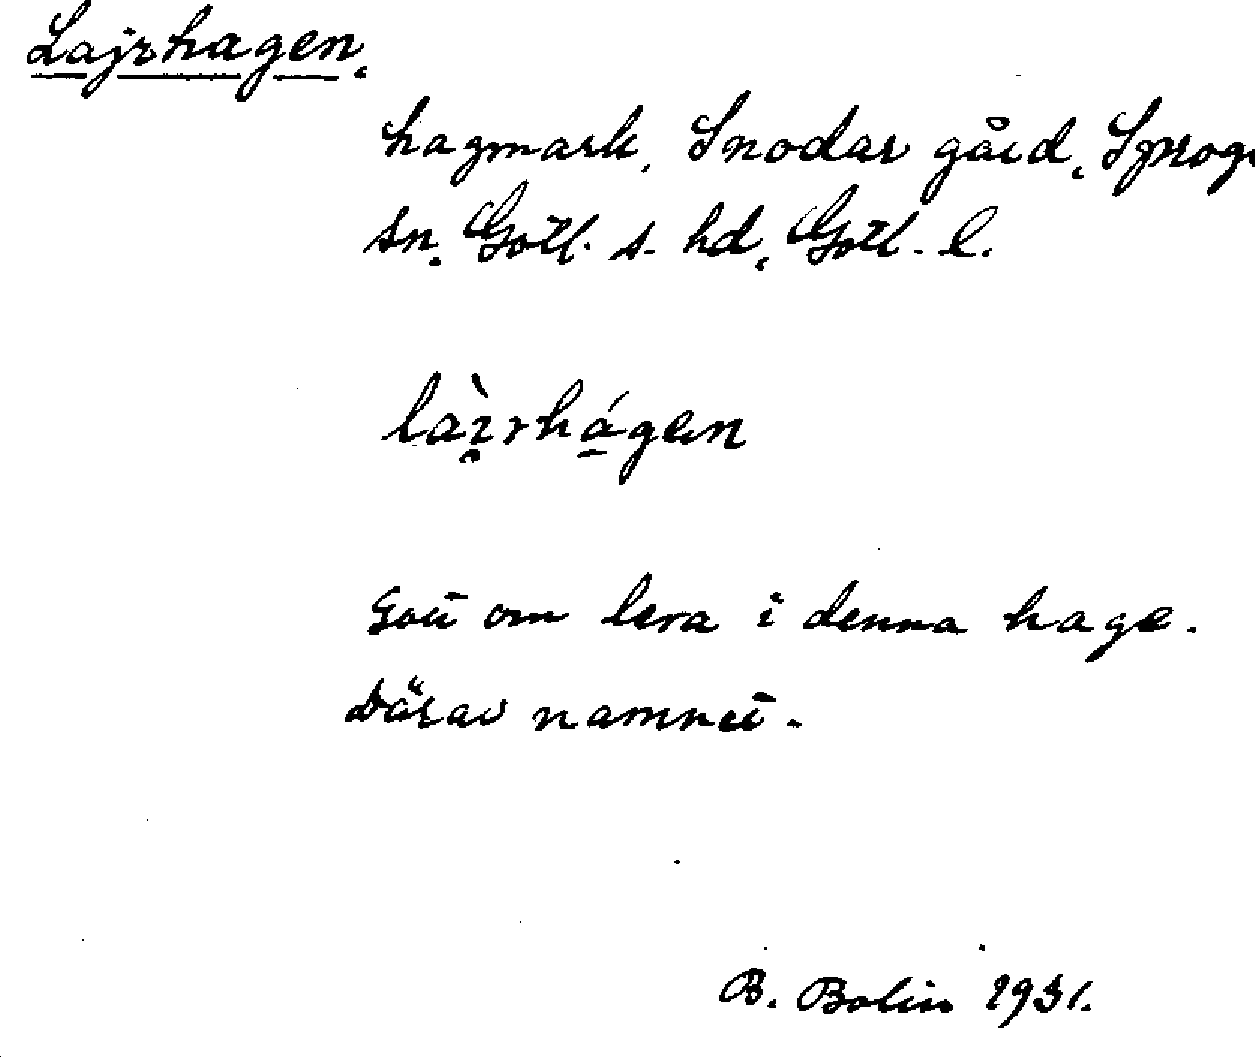 Lajrhagen.
hagmark, Snodar gård, Sproge
sn. Gotl. s. hd, Gotl. l.
làı̯rhágen
Gott om lera i denna hage.
Därav namnet.
B. Bolin 1931.